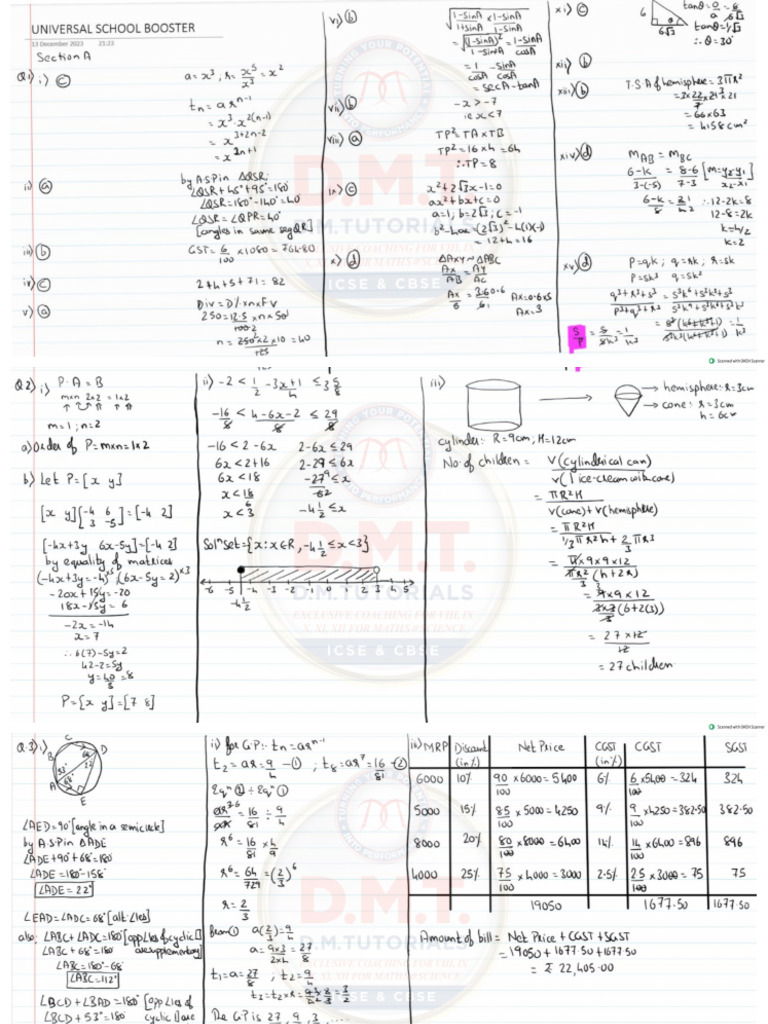 UNIVERSAL SCHOOL BOOSTER
13 December 2023 21:23
Section A
Q1) i) c
a = x³ ; r = x⁵/x³ = x²
tn = arⁿ⁻¹
= x³·x²⁽ⁿ⁻¹⁾
= x³⁺²ⁿ⁻²
= x²ⁿ⁺¹
ii) a
by ASP in ΔQSR:
∠QSR + 45° + 95° = 180°
∠QSR = 180° - 140° = 40°
∠QSR = ∠QPR = 40°
[angles in same seg QR]
iii) b
GST = 6/100 × 1080 = 764.80
iv) c
2+4+5+71 = 82
v) a
Div = D/. × n × FV
250 = 12.5/100.2 × n × 50
n = 250 × 2 × 10/125 = 40
vi) b
√(1-sinA/1+sinA × 1-sinA/1-sinA)
= √((1-sinA)²/1-sin²A) = 1-sinA/cosA
= 1/cosA - sinA/cosA
= secA - tanA
vii) b
-x > -7
ie x < 7
viii) a
TP² = TA × TB
TP² = 16 × 4 = 64
∴ TP = 8
ix) c
x² + 2√3x - 1 = 0
ax² + bx + c = 0
a = 1, b = 2√3, c = -1
b² - 4ac = (2√3)² - 4(1)(-1)
= 12 + 4 = 16
x) d
ΔAXY ~ ΔABC
AX/AB = AY/AC
AX = 0.6×5
AX = 3
xi) c
6
6√3
∴ θ = 30°
xii) b
xiii) b
T.S.A of hemisphere = 3πr²
= 3 × 22/7 × 21 × 21
= 66 × 63
= 4158 cm²
xiv) d
mAB = mBC
6-k/3-(-5) = 8-6/7-3 [m = y₂-y₁/x₂-x₁]
∴ 12-2k = 8
12-8 = 2k
k = 4/2
k = 2
xv) d
p = qk ; q = rk ; r = sk
p = sk³ q = sk²
q³+r³+s³/p³+q³+r³ = s³k⁶+s³k³+s³/s³k⁹+s³k⁶+s³k³
s/p = s/sk³ = 1/k³
Q2) i) P·A = B
m×n 2×2 = 1×2
m = 1 ; n = 2
a) Order of P = m×n = 1×2
b) Let P = [x y]
[x y][-4 6 3 -5] = [-4 2]
[-4x+3y 6x-5y] = [-4 2]
by equality of matrices
(-4x+3y = -4)ˣ⁵ ; (6x-5y = 2)ˣ³
-20x + 15y = -20
18x - 15y = 6
-2x = -14
x = 7
∴ 6(7) - 5y = 2
42 - 2 = 5y
y = 40/5 = 8
P = [x y] = [7 8]
ii) -2 < 1/2 - 3x+1/4 ≤ 3 5/8
-16/8 < 4-6x-2/8 ≤ 29/8
-16 < 2-6x 2-6x ≤ 29
6x < 2+16 2-29 ≤ 6x
6x < 18
x < 18/6 -4 1/2 ≤ x
x < 3
Solⁿ Set = {x : x∈R, -4 1/2 ≤ x < 3}
-6 -5 -4 -3 -2 -1 0 1 2 3 4 5
-4 1/2
iii)
→ hemisphere: r = 3cm
→ cone: r = 3cm
h = 6cm
cylinder: R = 9cm, H = 12cm
No. of children = V(cylinderical can)/V(1 ice-cream with cone)
= πR²H/V(cone) + V(hemisphere)
= πR²H/1/3πr²h + 2/3πr³
= π × 9 × 9 × 12/πr²/3(h+2r)
= 9 × 9 × 12/3×3/3(6+2(3))
= 27 × 12/12
= 27 children
Scanned with OKEN Scanner
Scanned with OKEN Scanner
Q.3) i)
C
B
D
A
E
∠AED = 90° [angle in a semicircle]
by ASP in ΔADE
∠ADE + 90° + 68° = 180°
∠ADE = 180° - 158°
∠ADE = 22°
∠EAD = ∠ADC = 68° [alt ∠les]
also; ∠ABC + ∠ADC = 180° [opp ∠les of cyclic □ are supplementary]
∠ABC + 68° = 180°
∠ABC = 180° - 68°
∠ABC = 112°
∠BCD + ∠BAD = 180° [opp ∠les of
∠BCD + 53° = 180° cyclic □ are
ii) for G.P:- tn = arⁿ⁻¹
t₂ = ar = 9/4 —① ; t₈ = ar⁷ = 16/81 —②
2qⁿ ② ÷ 2qⁿ ①
r⁶ = 16/81 × 4/9
r⁶ = 64/729 = (2/3)⁶
r = 2/3
from ① a(2/3) = 9/4
a = 9×3/2×4 = 27/8
t₁ = a = 27/8 ; t₂ = 9/4
t₃ = t₂ × r = 9/4 × 2/3 = 3/2
The GP is 27, 9, 3, ....
iii) MRP Discount (in%) Net Price CGST (in%) CGST SGST
6000 10% 90/100 × 6000 = 5400 6% 6/100 × 5400 = 324 324
5000 15% 85/100 × 5000 = 4250 9% 9/100 × 4250 = 382.50 382.50
8000 20% 80/100 × 8000 = 6400 14% 14/100 × 6400 = 896 896
4000 25% 75/100 × 4000 = 3000 2.5% 25/100 × 3000 = 75 75
19050 1677.50 1677.50
Amount of bill = Net Price + CGST + SGST
= 19050 + 1677.50 + 1677.50
= ₹ 22,405.00
D.M.T.
D.M.TUTORIALS
EXCLUSIVE COACHING FOR VIII, IX
X, XI, XII FOR MATHS & SCIENCE
ICSE & CBSE